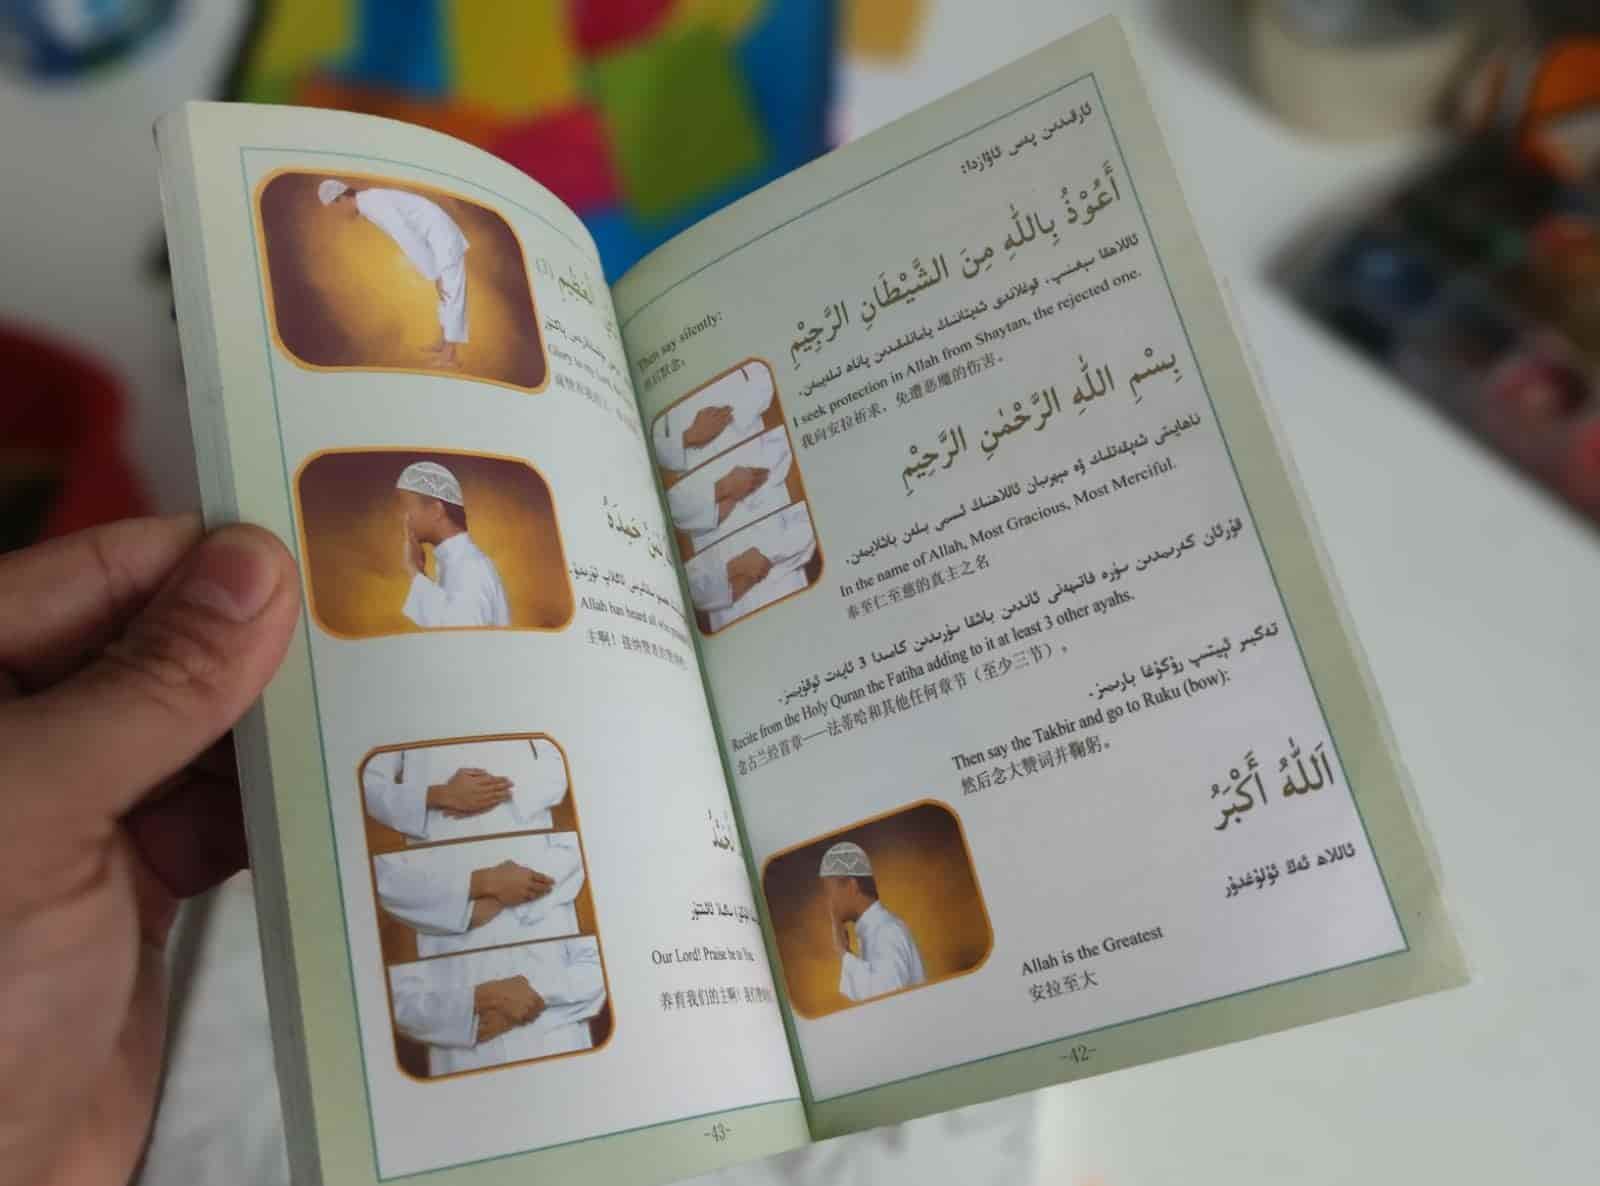 ئارقىدىن پەس ئاۋازدا:
Then say silently:
然后默念:
أَعُوْذُ بِاللهِ مِنَ الشَّيْطَانِ الرَّجِيْمِ
ئاللاھقا سېغىنىپ، قوغلاندى شەيتاننىڭ يامانلىقىدىن پاناھ تىلەيمەن.
I seek protection in Allah from Shaytan, the rejected one.
我向安拉祈求，免遭恶魔的伤害。
بِسْمِ اللهِ الرَّحْمٰنِ الرَّحِيْمِ
ناھايىتى شەپقەتلىك ۋە مېھرىبان ئاللاھنىڭ ئىسمى بىلەن باشلايمەن.
In the name of Allah, Most Gracious, Most Merciful.
奉至仁至慈的真主之名
قۇرئان كەرىمدىن سۈرە فاتىھەنى ئاندىن باشقا سۈرىدىن كاسىدا 3 ئايەت ئوقۇيمىز.
Recite from the Holy Quran the Fatiha adding to it at least 3 other ayahs.
念古兰经首章——法蒂哈和其他任何章节（至少三节）。
تەكبىر ئېيتىپ رۇكۇغا بارىمىز.
Then say the Takbir and go to Ruku (bow):
然后念大赞词并鞠躬。
اَللهُ أَكْبَرُ
ئاللاھ ئەڭ ئۇلۇغدۇر
Allah is the Greatest
安拉至大
-42-
الْعَظِيْمِ (3)
Glory to my Lord,
حَمِدَهُ
Allah has heard all who
主啊！接纳赞者的
Our Lord! Praise be to You
养育我们的主啊！
-43-